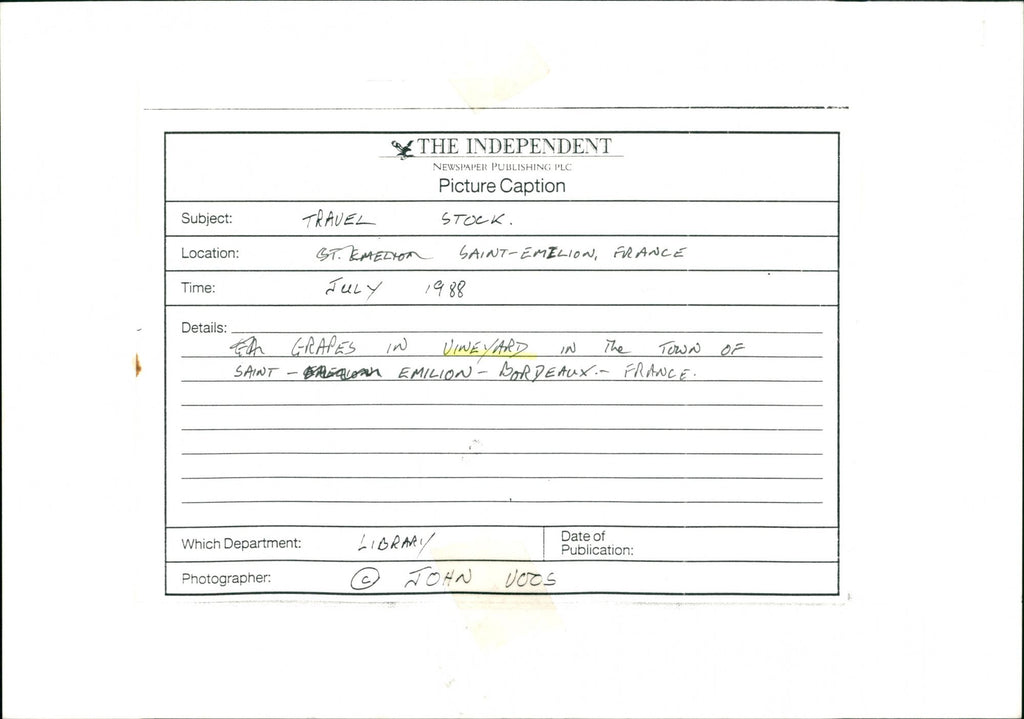 THE INDEPENDENT
NEWSPAPER PUBLISHING PLC
Picture Caption
Subject: TRAVEL STOCK.
Location: SAINT-EMILION, FRANCE
Time: JULY 1988
Details:
GRAPES IN VINEYARD IN The TOWN OF
SAINT - EMILION - BORDEAUX. - FRANCE.
Which Department: LIBRARY
Date of
Publication:
Photographer: © JOHN VOOS